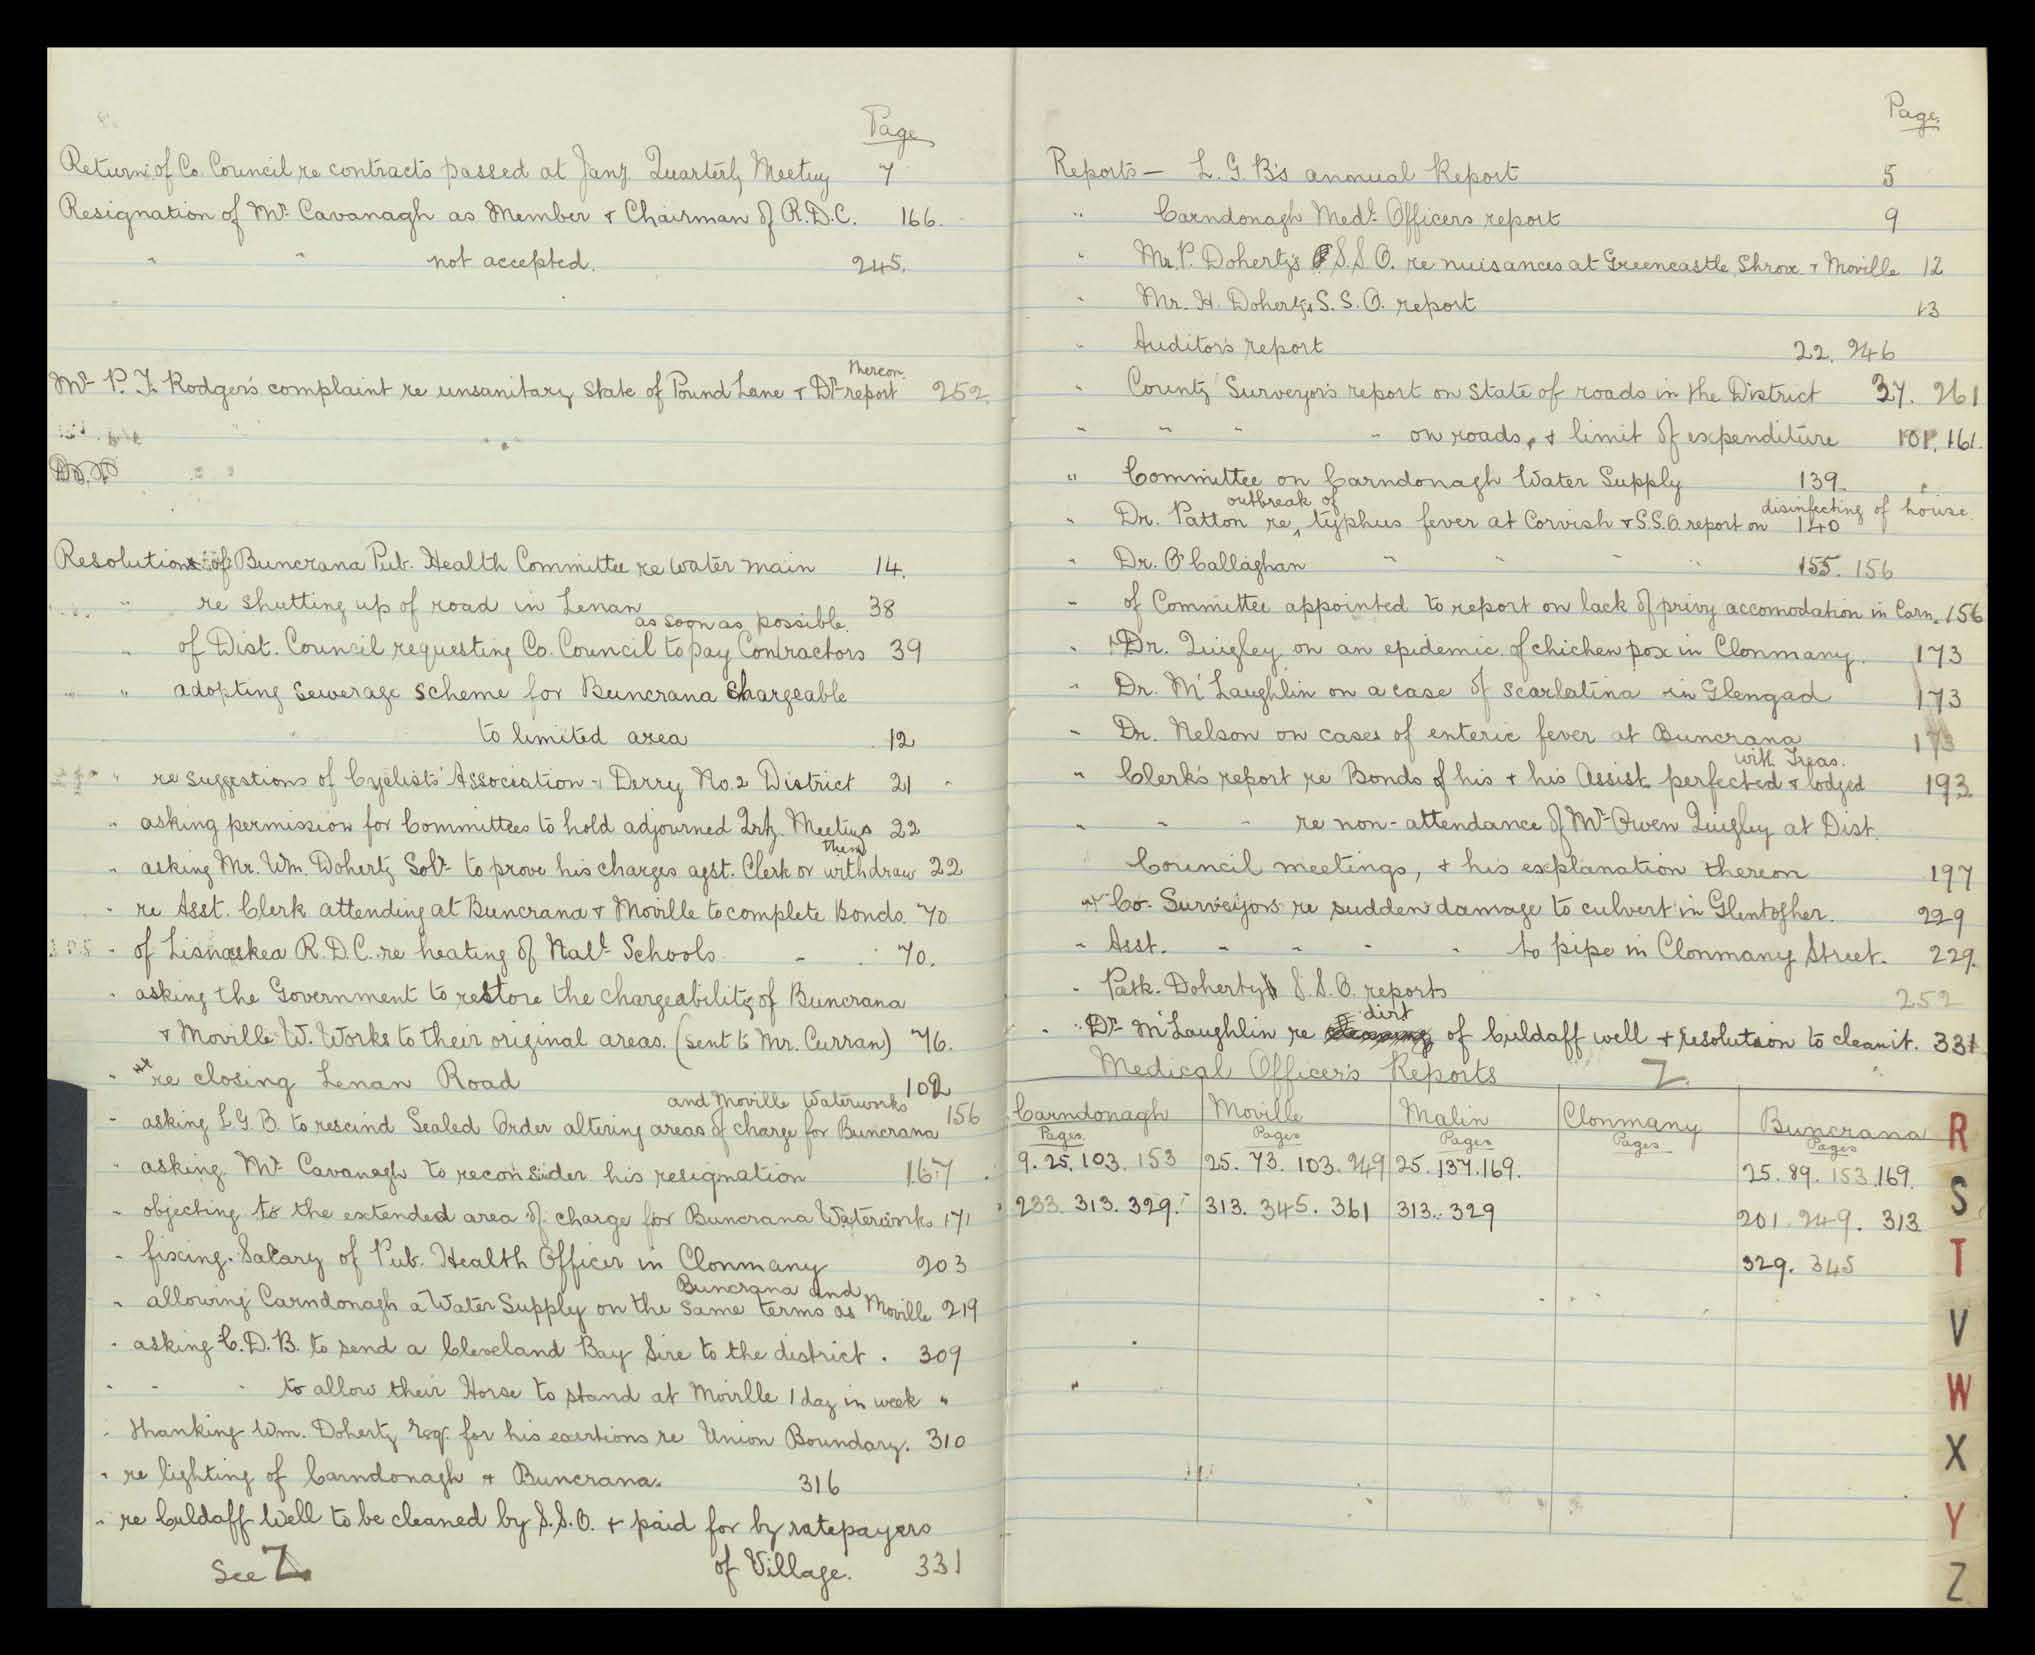 Page
Return of Co. Council re contracts passed at Jany. Quarterly Meeting 7
Resignation of Mr. Cavanagh as Member & Chairman of R.D.C. 166.
" " not accepted. 245.
thereon
Mr. P. F. Rodger's complaint re unsanitary state of Pound Lane & Dr. report 252.
Resolutions of Buncrana Pub. Health Committee re water main 14.
" re shutting up of road in Lenan 38
as soon as possible.
" of Dist. Council requesting Co. Council to pay Contractors 39
" " adopting sewerage scheme for Buncrana Chargeable
to limited area 12
" re suggestions of Cyclists' Association - Derry No. 2 District 21
" asking permission for Committees to hold adjourned Qrtly. Meetings 22
them
" asking Mr. Wm. Doherty Solr. to prove his charges agst. Clerk or withdraw 22
" re Asst. Clerk attending at Buncrana & Moville to complete Bonds. 70
" of Lisnaskea R.D.C. re heating of Natl. Schools 70.
" asking the Government to restore the chargeability of Buncrana
& Moville W. Works to their original areas. (sent to Mr. Curran) 76.
" re closing Lenan Road 102
and Moville Waterworks
" asking L.G.B. to rescind Sealed Order altering areas of charge for Buncrana 156
" asking Mr. Cavanagh to reconsider his resignation 167
" objecting to the extended area of charge for Buncrana Waterworks 171
" fixing Salary of Pub. Health Officer in Clonmany 203
Buncrana and
" allowing Carndonagh a Water Supply on the same terms as Moville 219
" asking C.D.B. to send a Cleveland Bay Sire to the district. 309
" " " to allow their Horse to stand at Moville 1 day in week "
" thanking Wm. Doherty Esq. for his exertions re Union Boundary. 310
" re lighting of Carndonagh & Buncrana. 316
" re Culdaff Well to be cleaned by S.S.O. & paid for by ratepayers
See Z of Village. 331
Page.
Reports — L.G.B's annual Report 5
" Carndonagh Medl. Officers report 9
" Mr. P. Doherty's S.S.O. re nuisances at Greencastle, Shrove & Moville 12
" Mr. H. Doherty's S.S.O. report 13
" Auditor's report 22. 246
" County Surveyor's report on state of roads in the District 37. 261
" " " " on roads, & limit of expenditure 101. 161.
" Committee on Carndonagh Water Supply 139.
outbreak of disinfecting of house
" Dr. Patton re typhus fever at Corvish & S.S.O. report on 140
" Dr. O'Callaghan " " " 155. 156
" of Committee appointed to report on lack of privy accomodation in Carn. 156
" Dr. Quigley on an epidemic of chicken pox in Clonmany. 173
" Dr. McLaughlin on a case of scarlatina in Glengad 173
" Dr. Nelson on cases of enteric fever at Buncrana 173
with Treas.
" Clerk's report re Bonds of his & his Assist. perfected & lodged 193
" " " re non-attendance of Mr. Owen Quigley at Dist.
Council meetings, & his explanation thereon 197
" Co. Surveyors re sudden damage to culvert in Glentogher. 229
" Asst. " " " " to pipe in Clonmany Street. 229.
" Patk. Doherty's S.S.O. reports 252
dirt
" Dr. McLaughlin re of Culdaff well & resolution to clean it. 331
Medical Officer's Reports Z.
Carndonagh Moville Malin Clonmany Buncrana
Pages Pages Pages Pages Pages
9. 25. 103. 153 25. 73. 103. 249 25. 137. 169. 25. 89. 153. 169.
233. 313. 329. 313. 345. 361 313. 329 201. 249. 313
329. 345
R
S
T
V
W
X
Y
Z